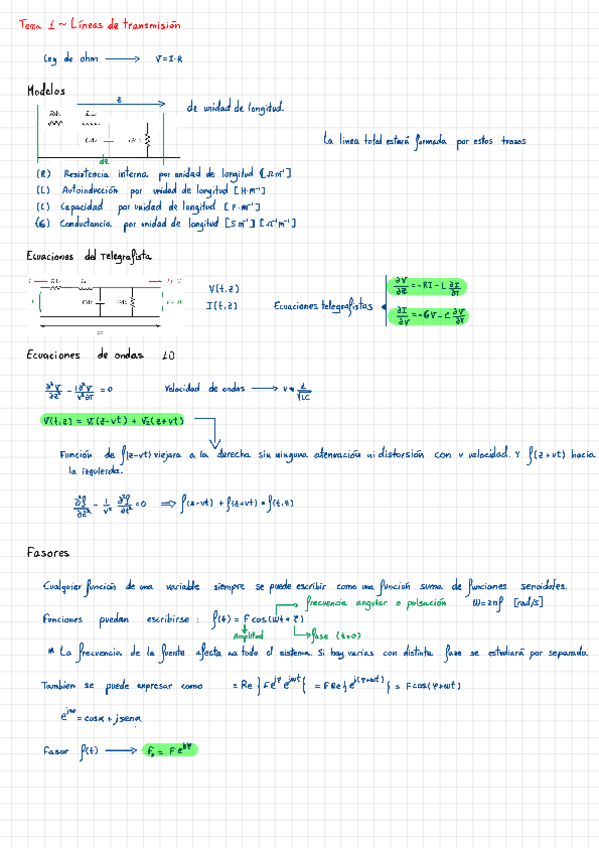 Tema 1 ~ Líneas de transmisión
Ley de ohm → V=I·R
Modelos
z
de unidad de longitud.
La linea total estará formada por estos trozos
dz
(R) Resistencia interna por unidad de longitud [Ωm⁻¹]
(L) Autoinducción por unidad de longitud [H·m⁻¹]
(C) Capacidad por unidad de longitud [F·m⁻¹]
(G) Conductancia por unidad de longitud [S m⁻¹] [Ω⁻¹m⁻¹]
Ecuaciones del Telegrafista
V(t,z)
I(t,z)
Ecuaciones telegrafistas
∂V/∂z = -RI - L ∂I/∂t
∂I/∂v = -GV - C ∂V/∂t
Ecuaciones de ondas 1D
∂²V/∂z² - 1/v² ∂²V/∂t = 0 Velocidad de ondas → v = 1/√LC
V(t,z) = V₁(z-vt) + V₂(z+vt)
Función de f(z-vt) viajara a la derecha sin ninguna atenuación ni distorsión con v velocidad. Y f(z+vt) hacia
la izquierda.
∂²f/∂z² - 1/v² ∂²f/∂t² = 0 ⟹ f(z-vt) + f(z+vt) = f(t,z)
Fasores
Cualquier función de una variable siempre se puede escribir como una función suma de funciones senoidales.
frecuencia angular o pulsación ω=2πf [rad/s]
Funciones puedan escribirse : f(t) = F cos(ωt + φ)
Amplitud fase (t=0)
* La frecuencia de la fuente afecta a todo el sistema. Si hay varias con distinta fase se estudiará por separado.
Tambien se puede expresar como = Re{Fe^jφ e^jωt} = F Re{e^j(φ+ωt)} = F cos(φ+ωt)
= cosα + j senα
Fasor f(t) →